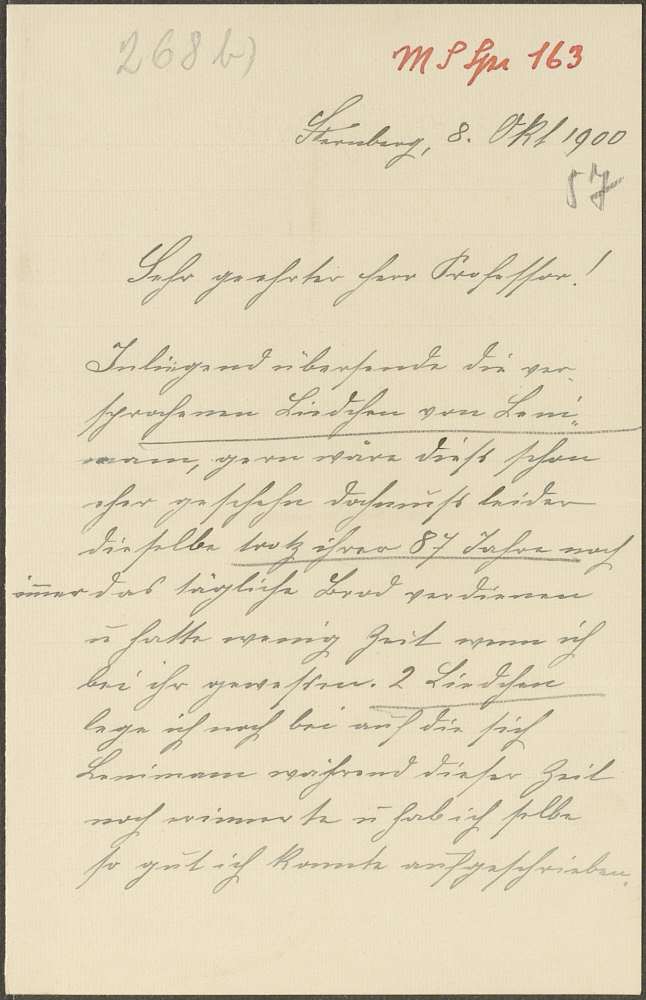 268 b)
MS Spr 163
Sternberg, 8. Okt 1900
57
Sehr geehrter Herr Professor!
Inliegend übersende die ver-
sprochenen Liedchen von Leni-
mam, gern wäre dieß schon
eher geschehn doch muß leider
dieselbe trotz ihrer 87 Jahre noch
immer das tägliche Brod verdienen
u hatte wenig Zeit wenn ich
bei ihr gewesen. 2 Liedchen
lege ich noch bei auf die sich
Lenimam während dieser Zeit
noch erinnerte u hab ich selbe
so gut ich konnte aufgeschrieben.